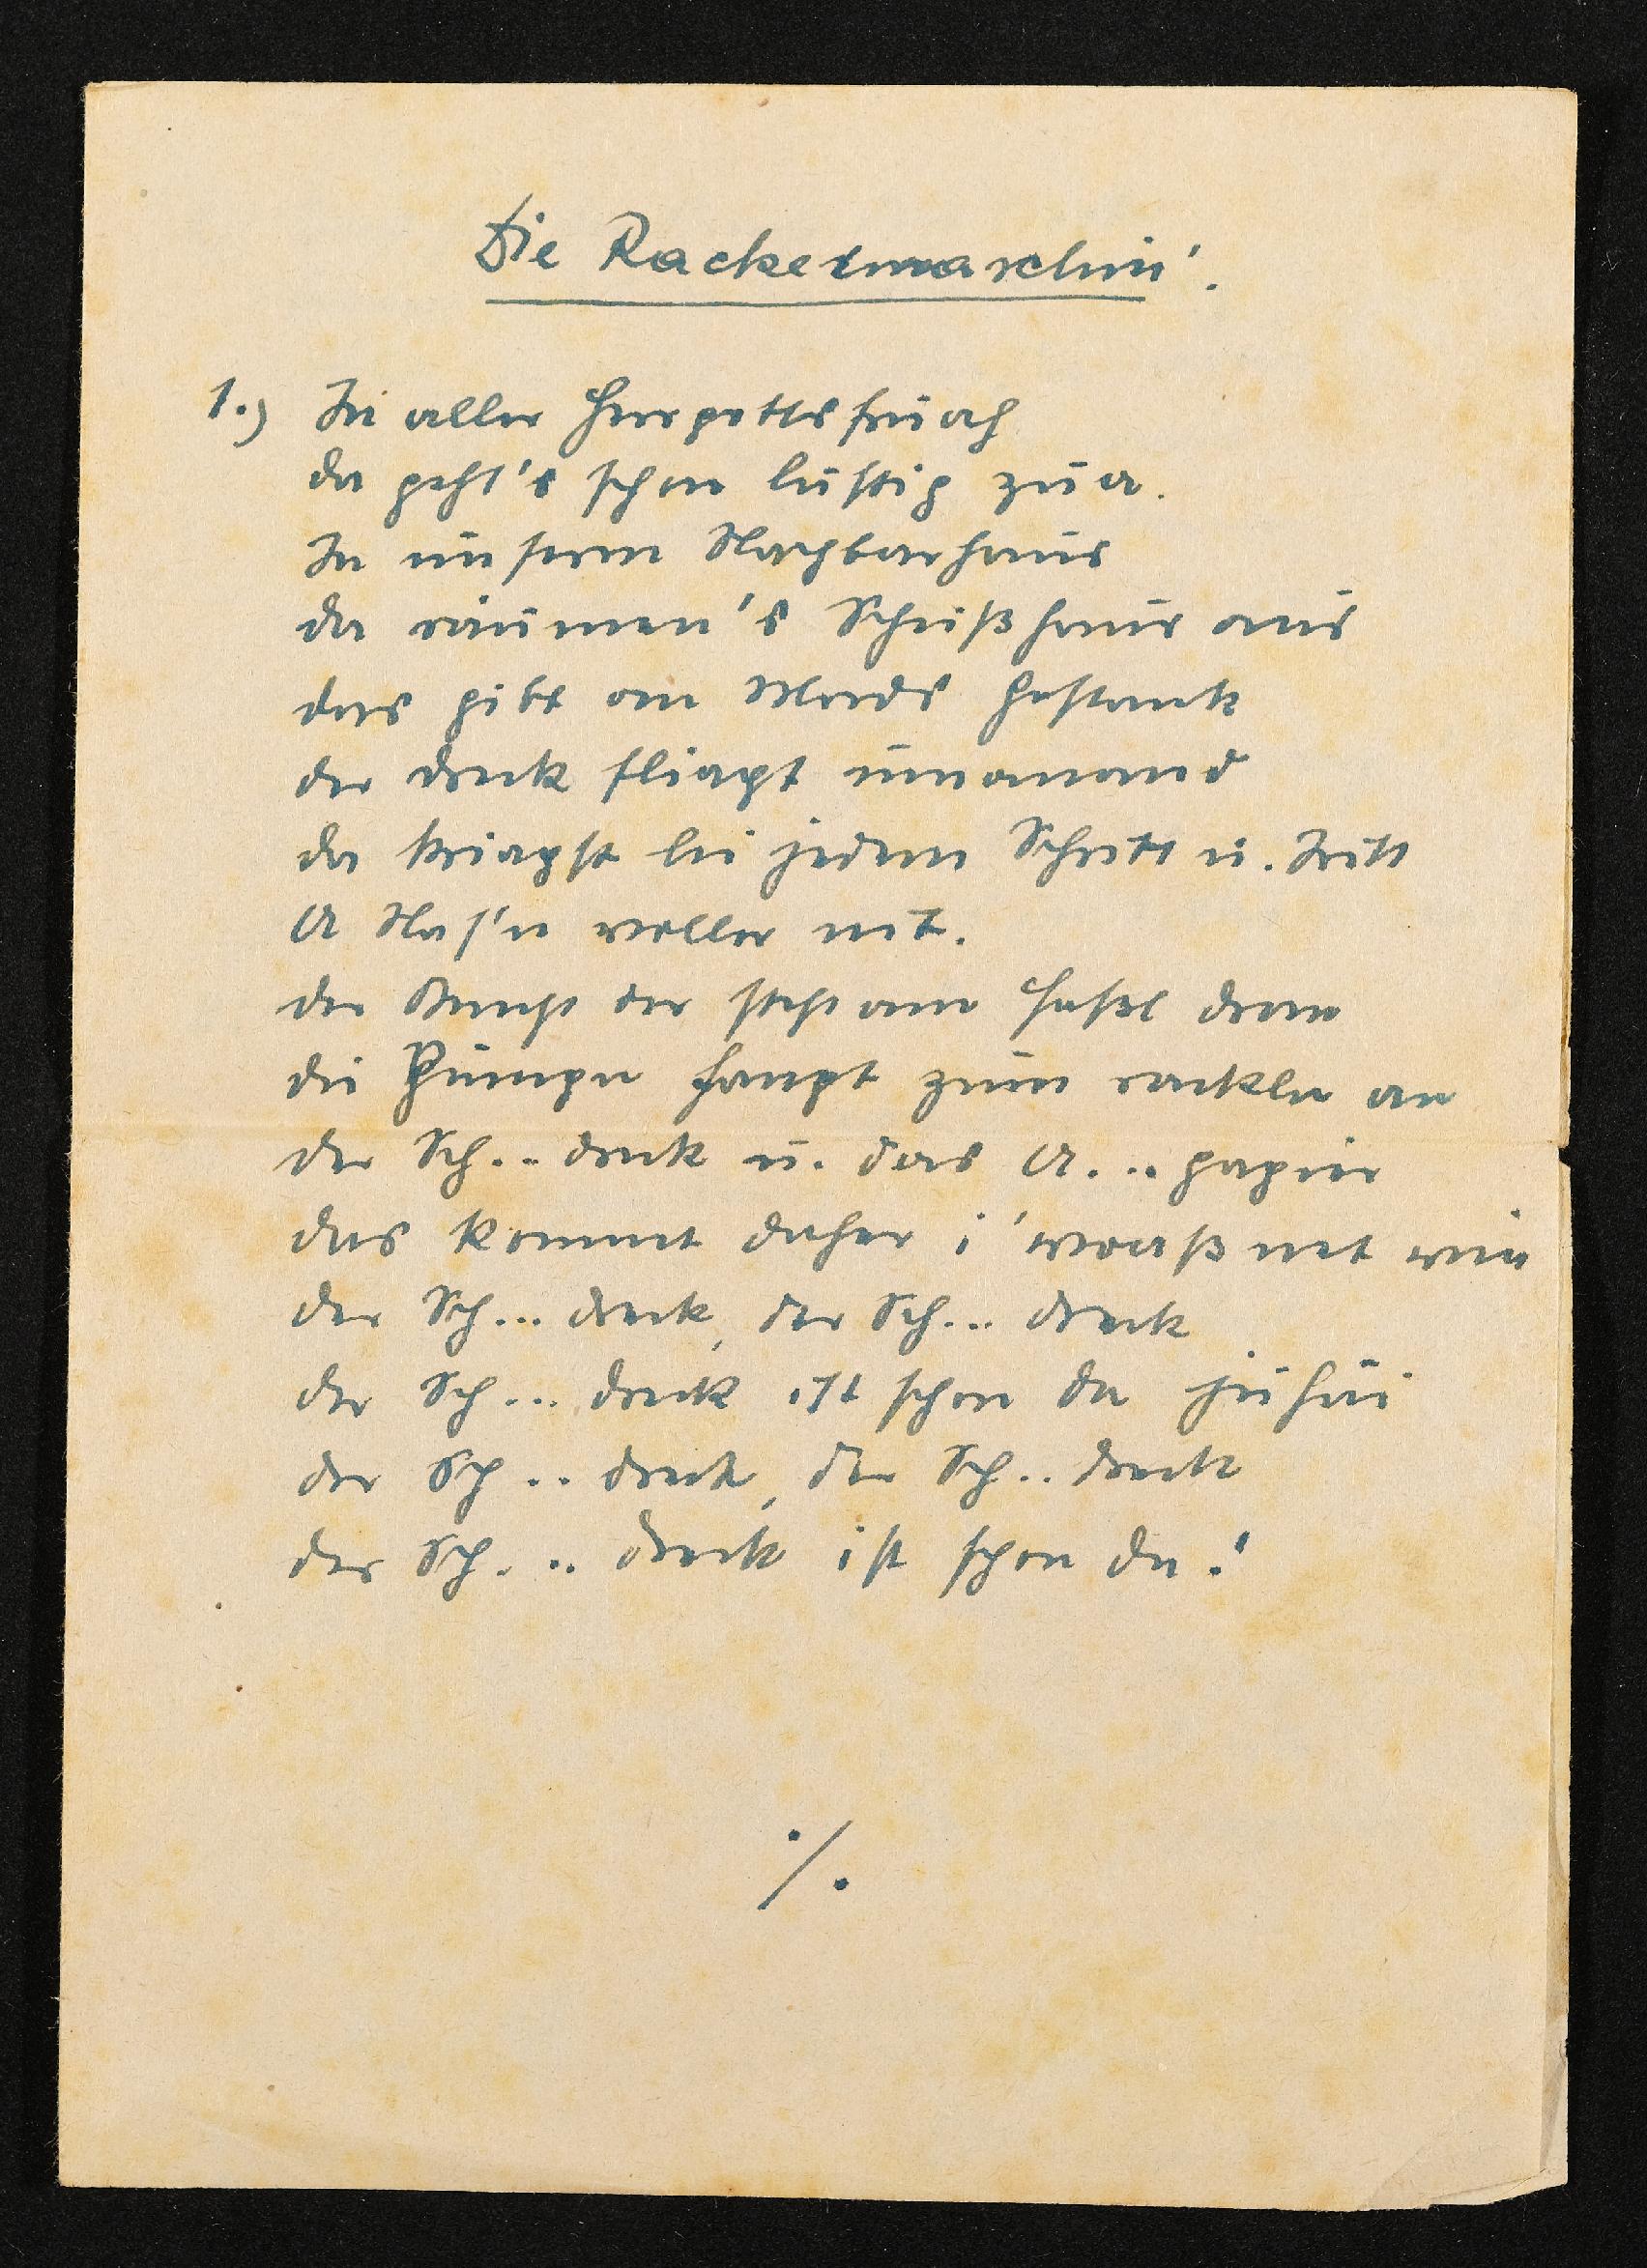 Die Rackermaschin'.
1.) In aller Herrgottsfruah
da geht's schon lustig zua.
In unserm Nachbarhaus
da räumen's Scheißhaus aus
das gibt an Mords Gestank
der Dreck fliagt umanand
da kriagst bei jedem Schritt u. Tritt
A Nas'n voller mit.
der steht am Faßl dran
die Pumpn fangt zum rackln an
der Sch.. dreck u. das A... papier
das kommt daher i' woaß net wia
der Sch... dreck, der Sch... dreck
der Sch... dreck ist schon da juhui
der Sch.. dreck, der Sch.. dreck
der Sch... dreck ist schon da!
./.